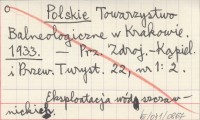 Polskie Towarzystwo
Balneologiczne w Krakowie.
1933. — Prz. Zdroj.-Kąpiel.
i Przew. Turyst. 22, nr 1: 2.
Eksploatacja wód szczaw-
nickich